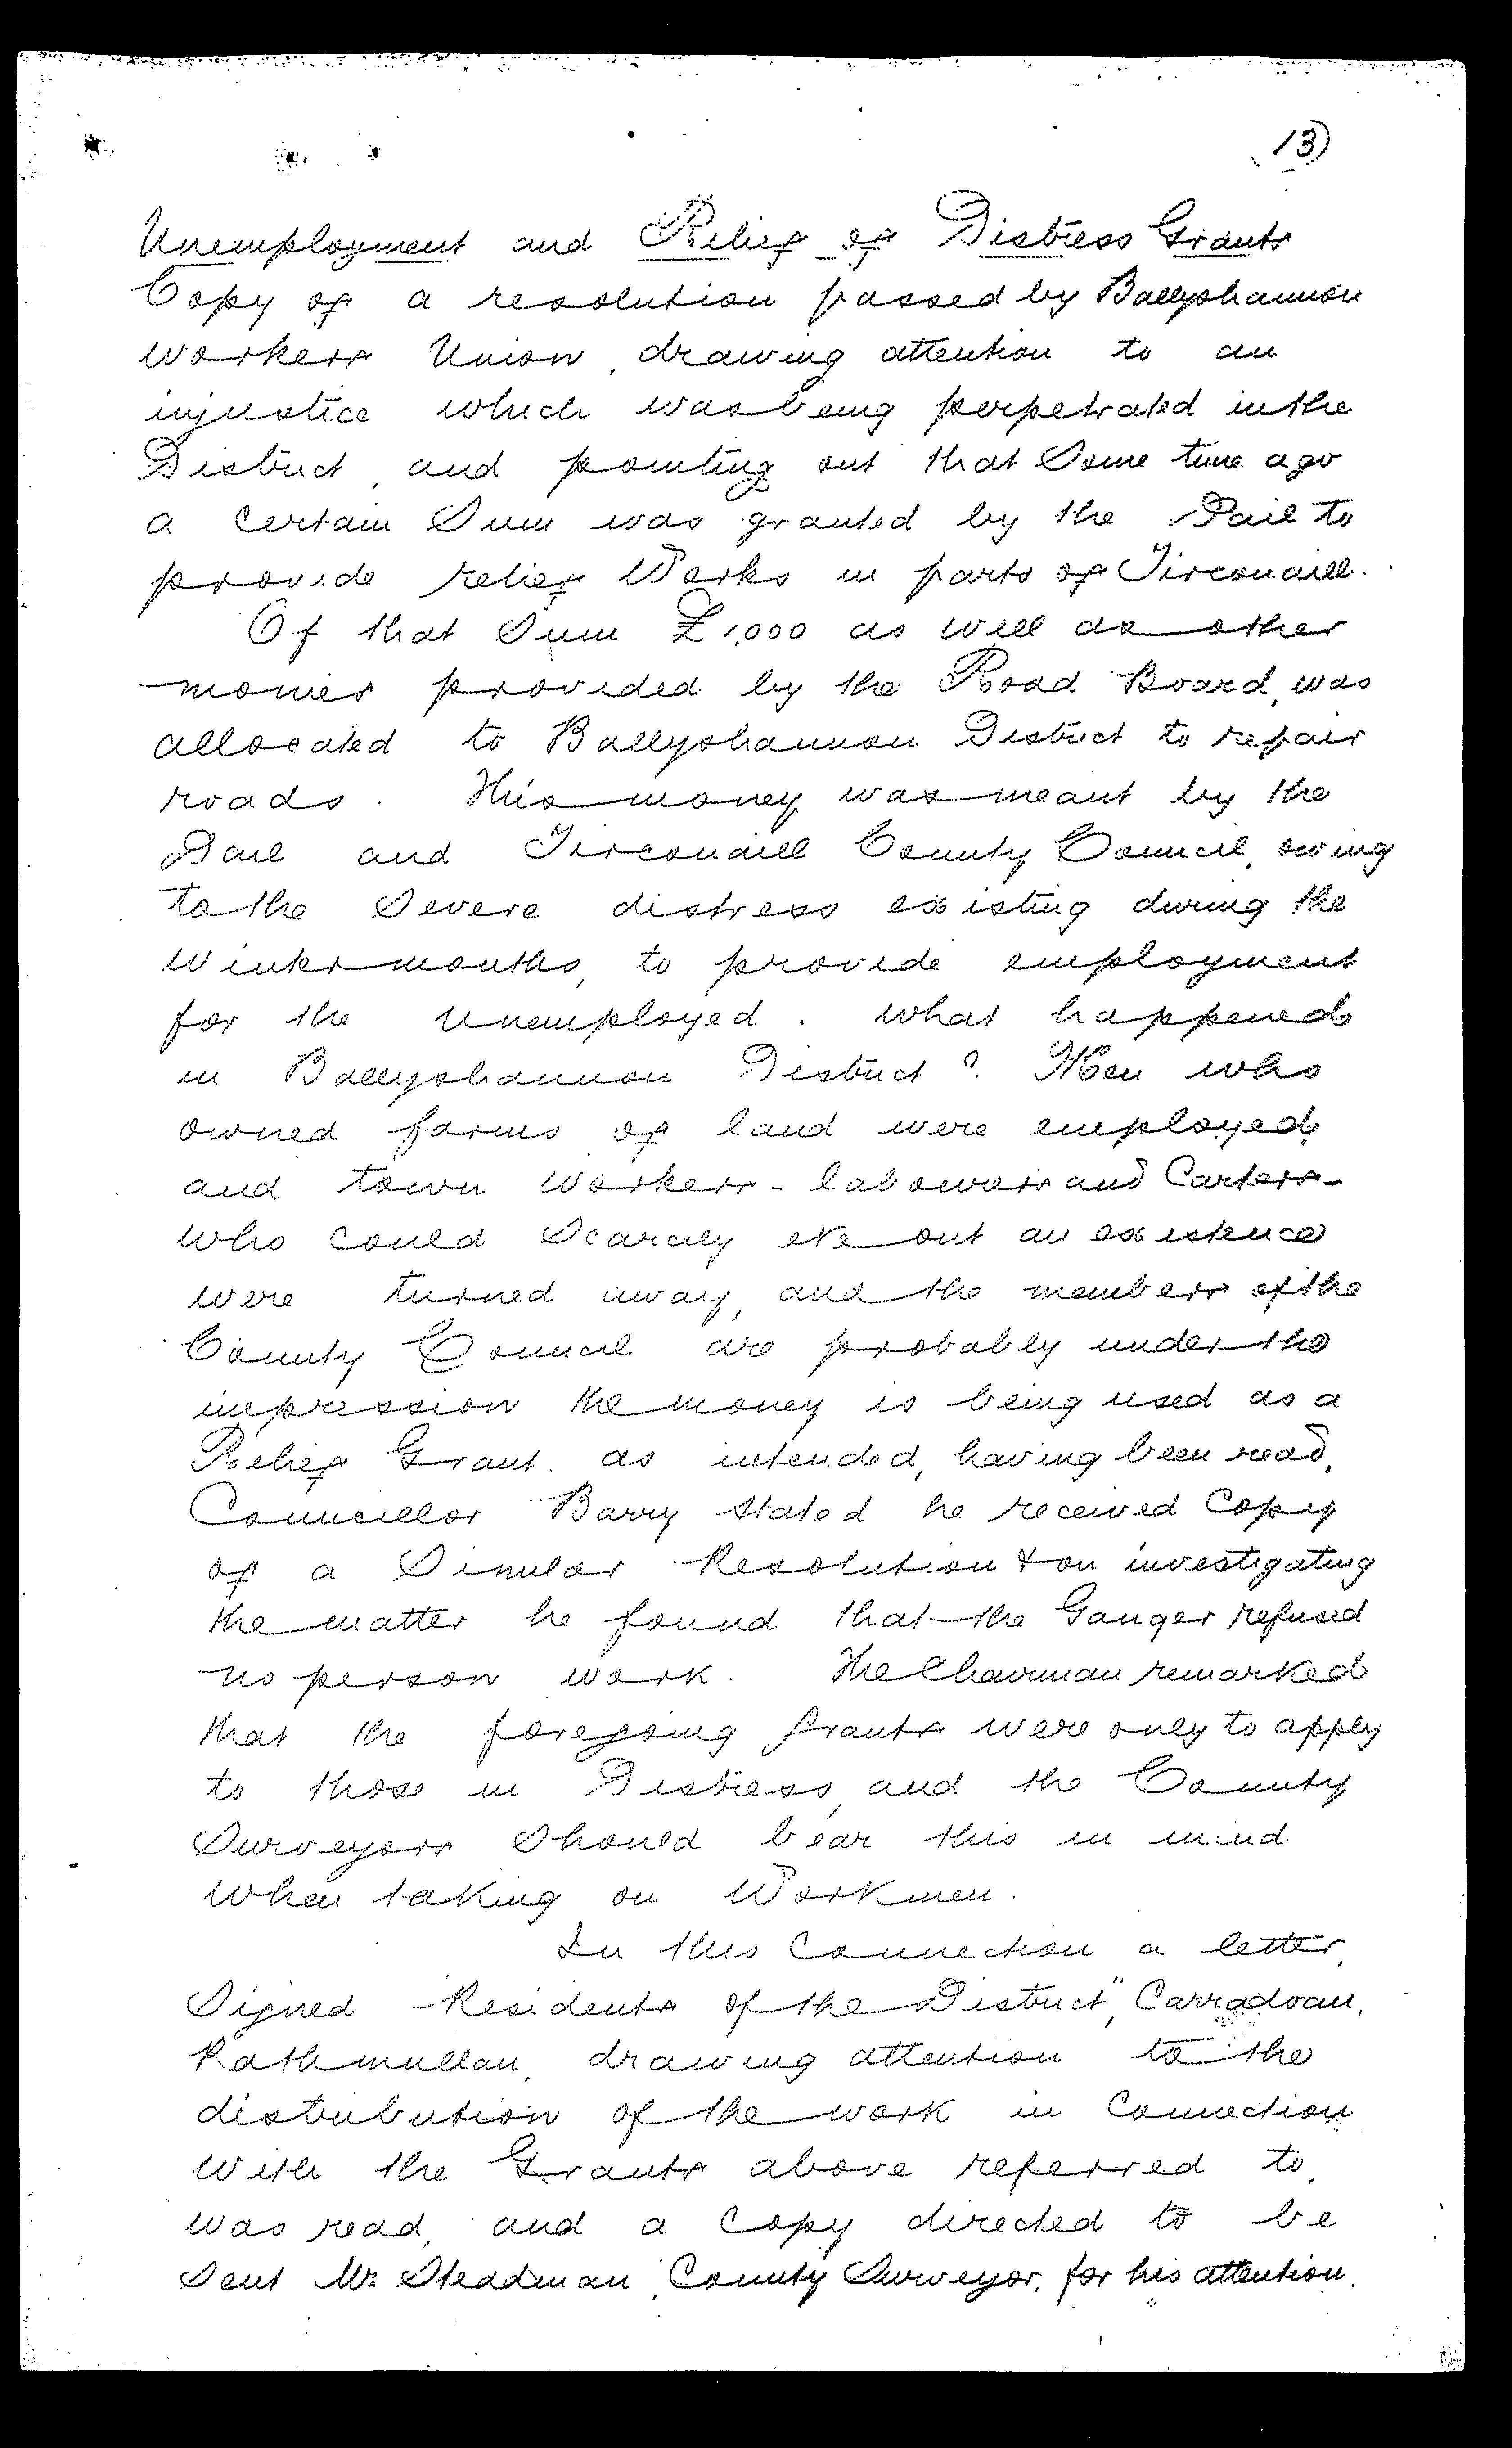 13)
Unemployment and Relief of Distress Grants
Copy of a resolution passed by Ballyshannon
workers Union, drawing attention to an
injustice which was being perpetrated in the
District, and pointing out that Some time ago
a certain Sum was granted by the Dail to
provide relief Works in parts of Tirconaill.
Of that Sum £1,000 as well as other
monies provided by the Road Board, was
allocated to Ballyshannon District to repair
roads. This money was meant by the
Dail and Tirconaill County Council, owing
to the Severe distress existing during the
Winter months, to provide employment
for the Unemployed. What happened
in Ballyshannon District? Men who
owned farms of land were employed
and town workers - labourers and Carters -
who could Scarcely eke out an existence
were turned away, and the members of the
County Council are probably under the
impression the money is being used as a
Relief Grant. as intended, having been read,
Councillor Barry stated he received Copy
of a Similar Resolution & on investigating
the matter he found that the Ganger refused
no person work. The Chairman remarked
that the foregoing Grants were only to apply
to those in Distress, and the County
Surveyors Should bear this in mind
when taking on Workmen.
In this Connection a letter,
Signed "Residents of the District", Carradoan,
Rathmullan, drawing attention to the
distribution of the work in Connection
with the Grants above referred to,
was read, and a Copy directed to be
Sent Mr. Steadman, County Surveyor, for his attention.